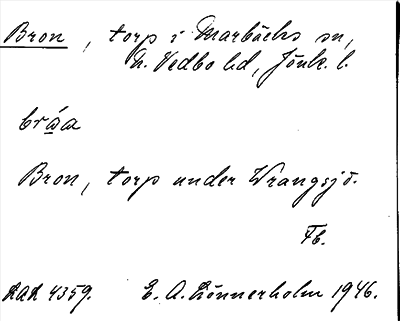 Bron, torp i Marbäcks sn,
N. Vedbo hd, Jönk. l.
bråa
Bron, torp under Wrangsjö.
Fb.
LAL 4359. E. A. Lönnerholm 1946.